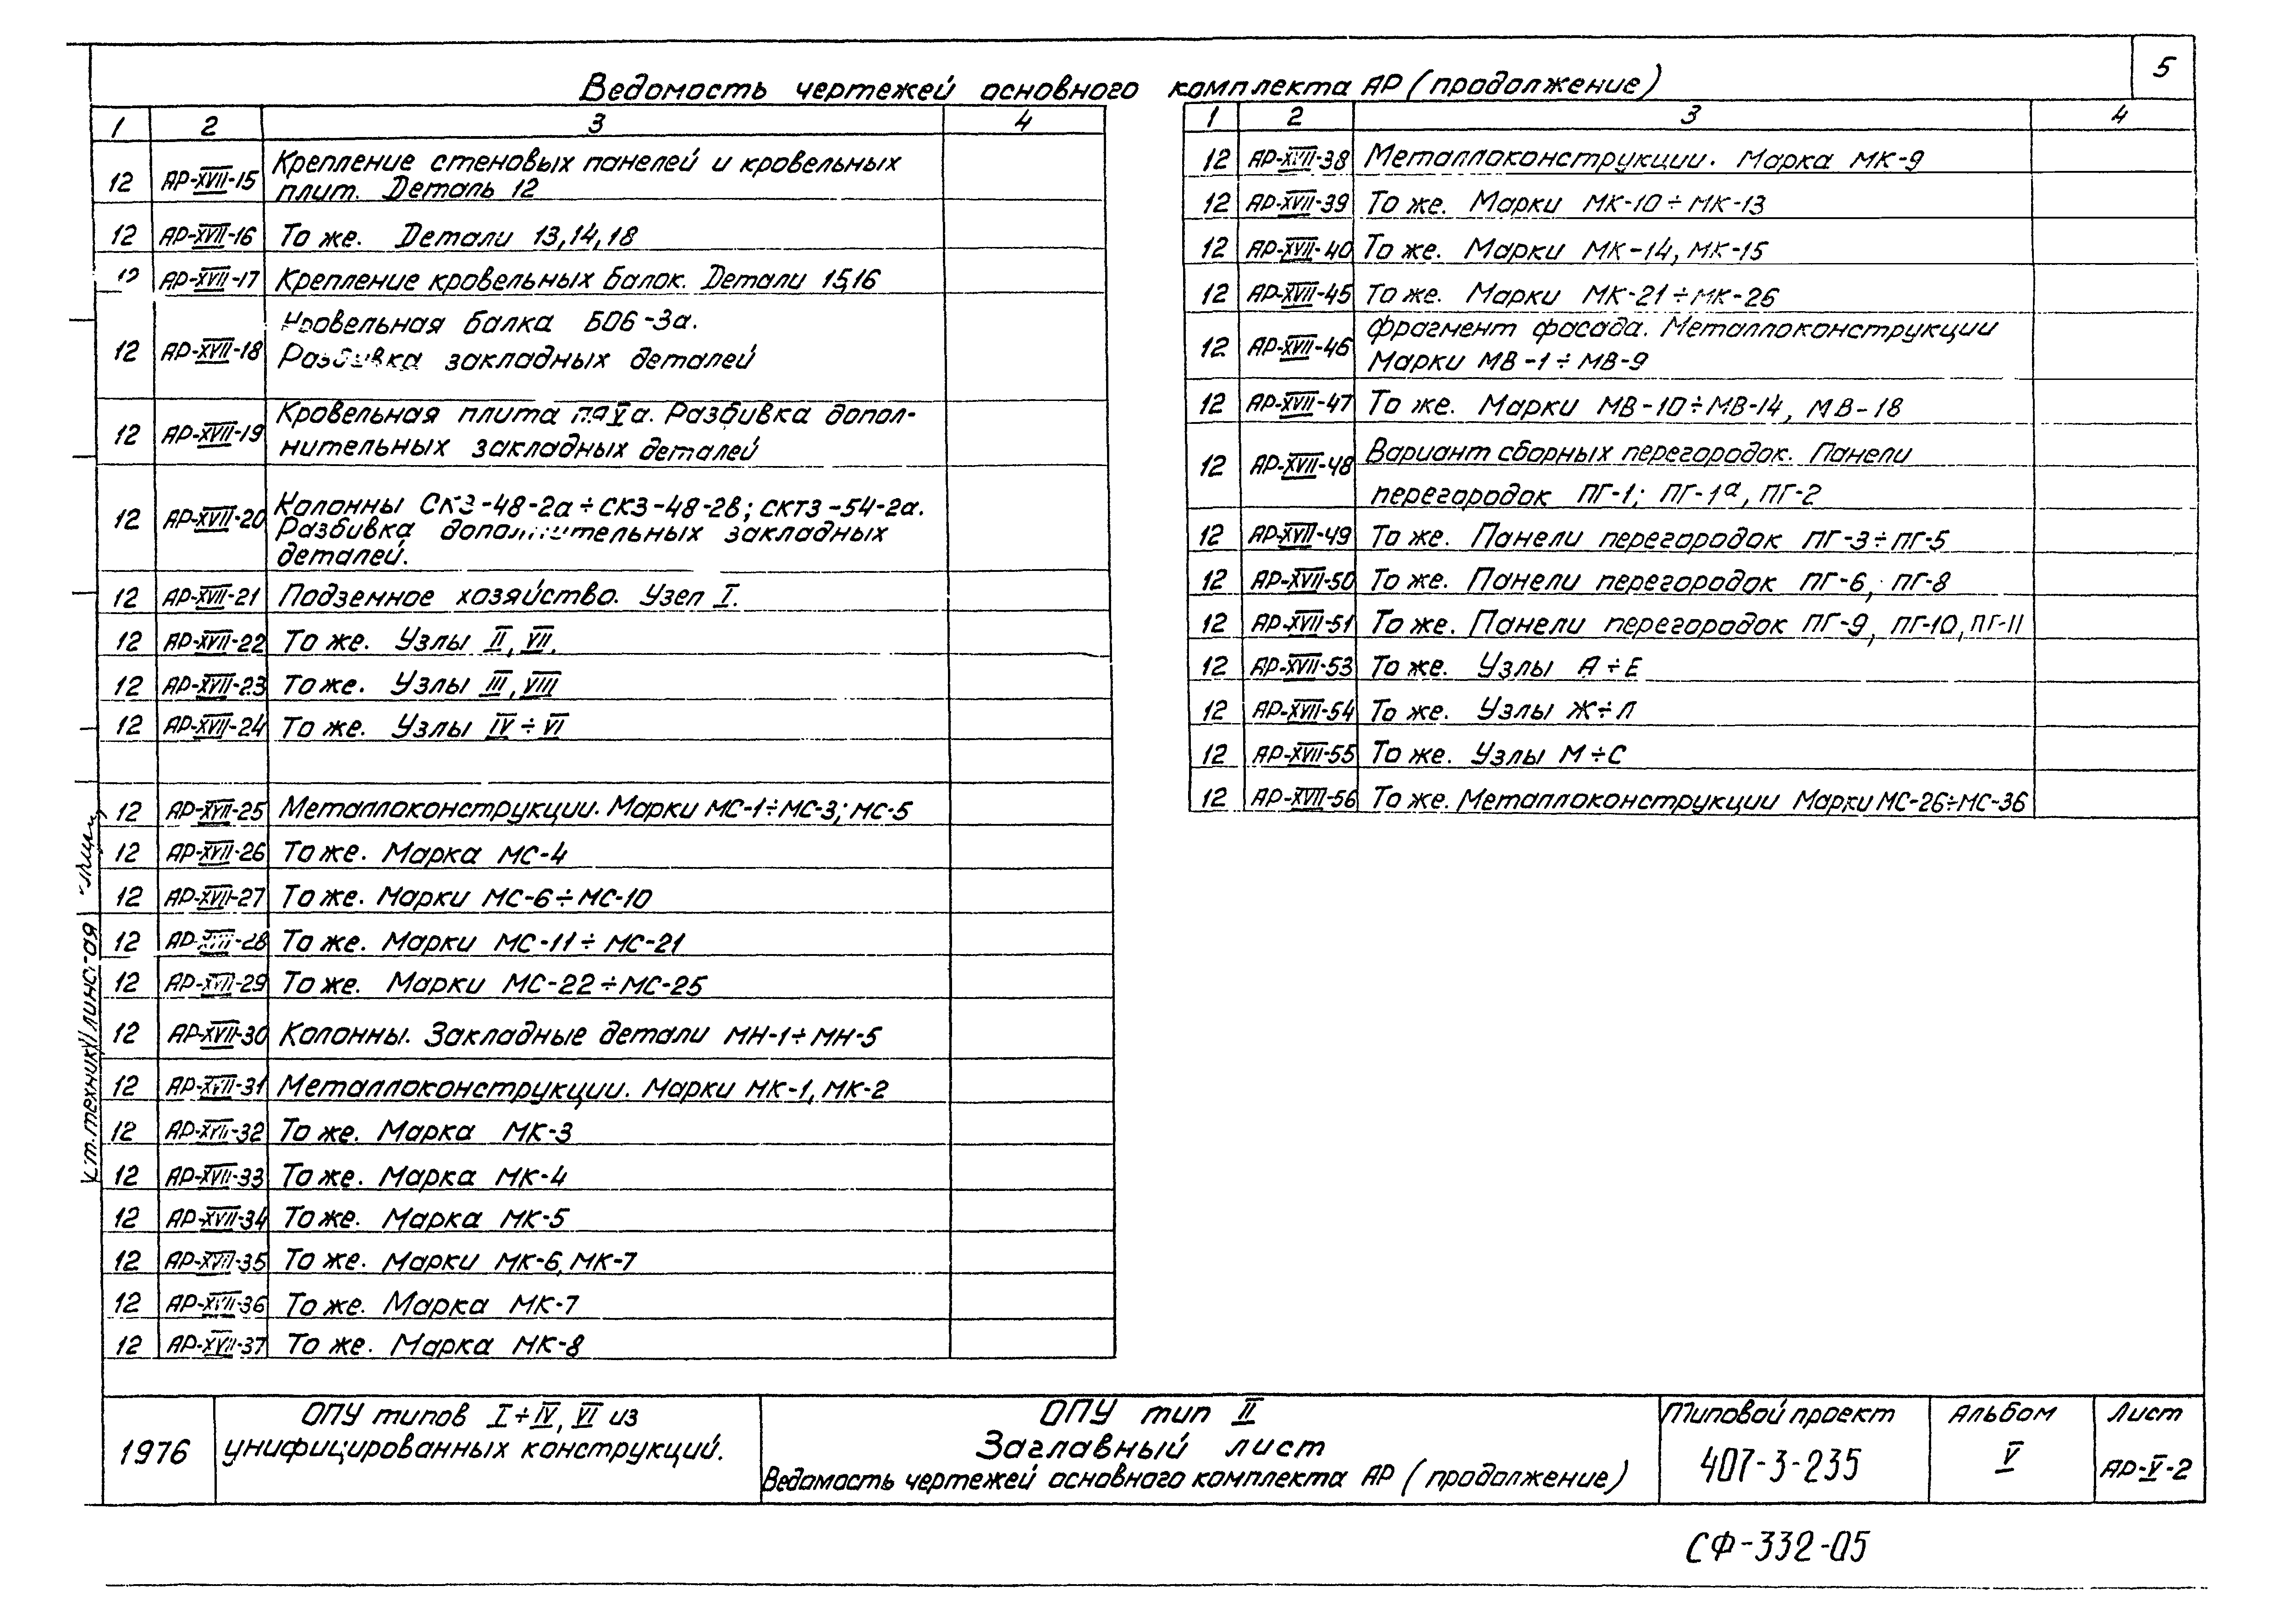 5
Ведомость чертежей основного комплекта АР (продолжение)
1 2 3 4
12 АР-XVII-15 Крепление стеновых панелей и кровельных
плит. Деталь 12
12 АР-XVII-16 То же. Детали 13,14,18
12 АР-XVII-17 Крепление кровельных балок. Детали 15,16
12 АР-XVII-18 Кровельная балка БОб-3а.
Разбивка закладных деталей
12 АР-XVII-19 Кровельная плита Разбивка допол-
нительных закладных деталей
12 АР-XVII-20 Колонны СК3-48-2а÷СК3-48-2в; СКТ3-54-2а.
Разбивка дополнительных закладных
деталей.
12 АР-XVII-21 Подземное хозяйство. Узел I.
12 АР-XVII-22 То же. Узлы II, VII.
12 АР-XVII-23 То же. Узлы III, VIII
12 АР-XVII-24 То же. Узлы IV÷VI
12 АР-XVII-25 Металлоконструкции. Марки МС-1÷МС-3; МС-5
12 АР-XVII-26 То же. Марка МС-4
12 АР-XVII-27 То же. Марки МС-6÷МС-10
12 АР-XVII-28 То же. Марки МС-11÷МС-21
12 АР-XVII-29 То же. Марки МС-22÷МС-25
12 АР-XVII-30 Колонны. Закладные детали МН-1÷МН-5
12 АР-XVII-31 Металлоконструкции. Марки МК-1, МК-2
12 АР-XVII-32 То же. Марка МК-3
12 АР-XVII-33 То же. Марка МК-4
12 АР-XVII-34 То же. Марка МК-5
12 АР-XVII-35 То же. Марки МК-6, МК-7
12 АР-XVII-36 То же. Марка МК-7
12 АР-XVII-37 То же. Марка МК-8
1 2 3 4
12 АР-XVII-38 Металлоконструкции. Марка МК-9
12 АР-XVII-39 То же. Марки МК-10÷МК-13
12 АР-XVII-40 То же. Марки МК-14, МК-15
12 АР-XVII-45 То же. Марки МК-21÷МК-26
12 АР-XVII-46 Фрагмент фасада. Металлоконструкции
Марки МВ-1÷МВ-9
12 АР-XVII-47 То же. Марки МВ-10÷МВ-14, МВ-18
12 АР-XVII-48 Вариант сборных перегородок. Панели
перегородок ПГ-1; ПГ-1а, ПГ-2
12 АР-XVII-49 То же. Панели перегородок ПГ-3÷ПГ-5
12 АР-XVII-50 То же. Панели перегородок ПГ-6, ПГ-8
12 АР-XVII-51 То же. Панели перегородок ПГ-9, ПГ-10, ПГ-11
12 АР-XVII-53 То же. Узлы А÷Е
12 АР-XVII-54 То же. Узлы Ж÷Л
12 АР-XVII-55 То же. Узлы М÷С
12 АР-XVII-56 То же. Металлоконструкции Марки МС-26÷МС-36
1976
ОПУ типов I÷IV, VI из
унифицированных конструкций.
ОПУ тип II
Заглавный лист
Ведомость чертежей основного комплекта АР (продолжение)
Типовой проект
407-3-235
Альбом
V
Лист
АР-V-2
СФ-332-05